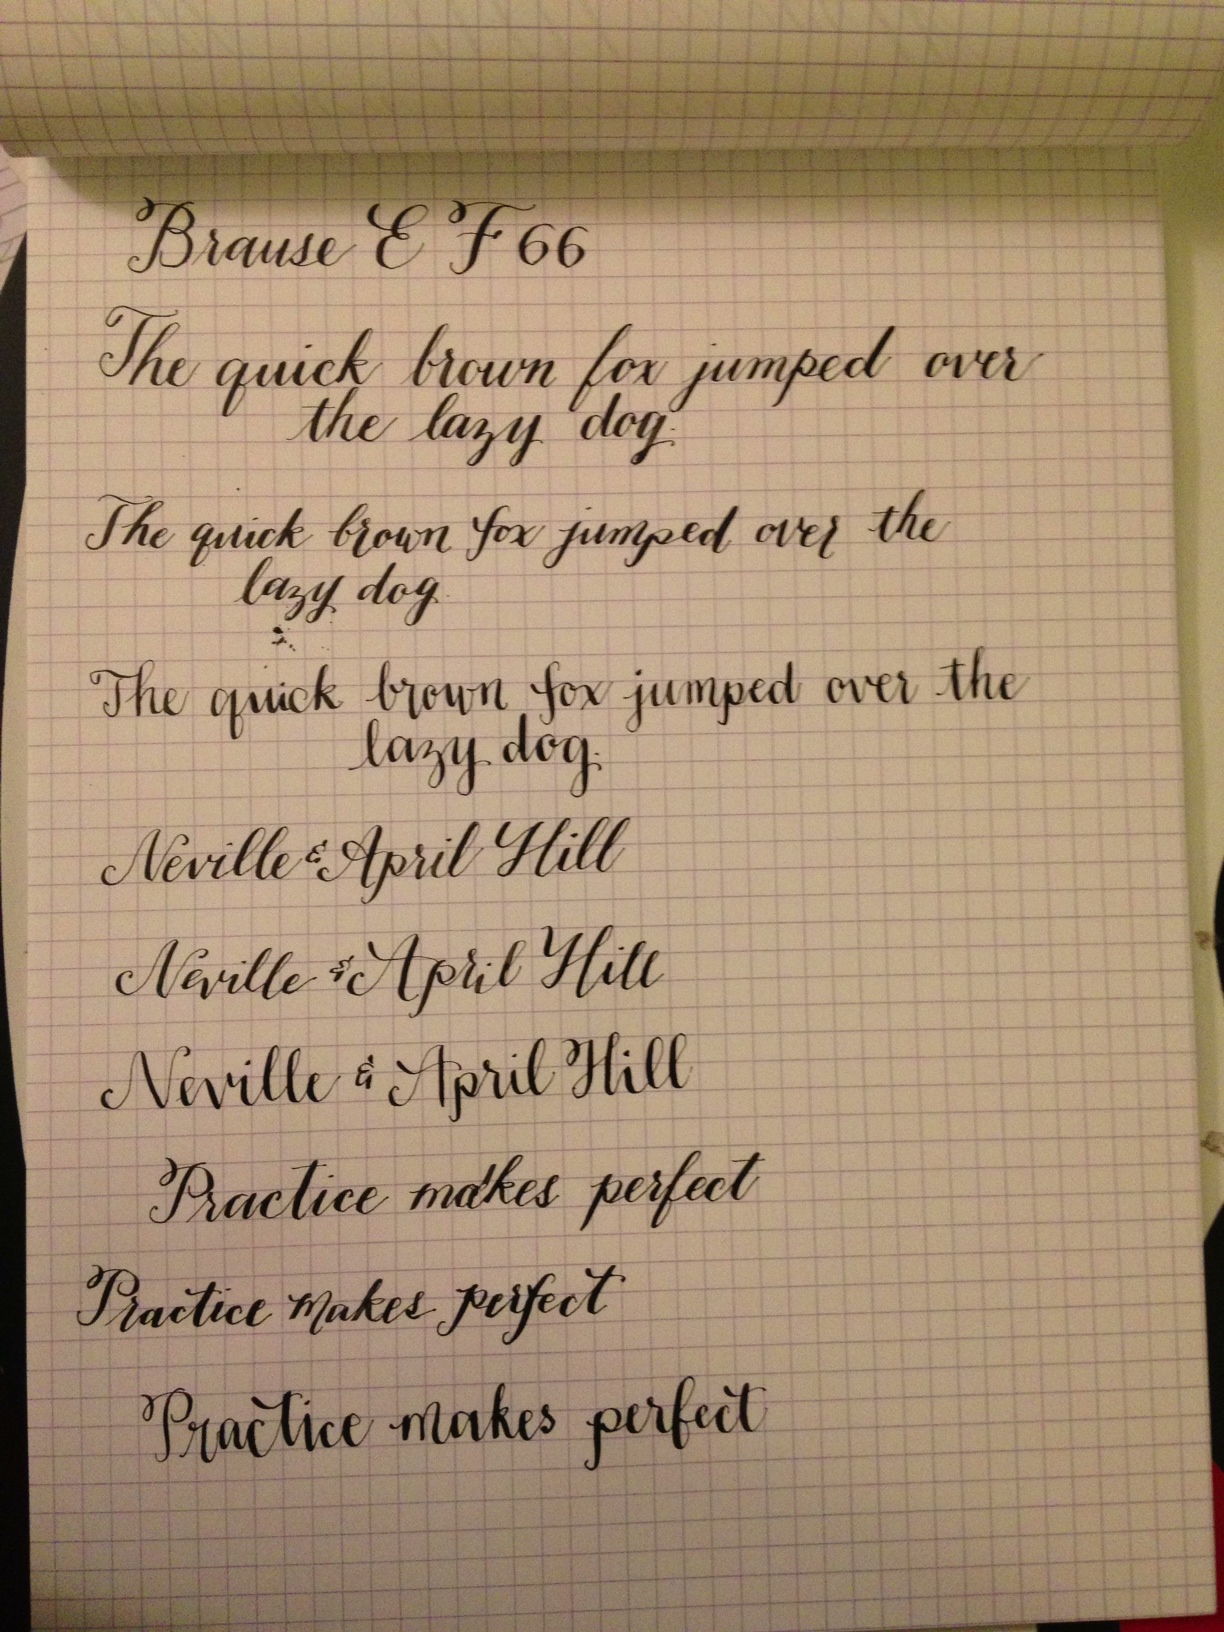 Brause EF 66
The quick brown fox jumped over
the lazy dog.
The quick brown fox jumped over the
lazy dog.
The quick brown fox jumped over the
lazy dog.
Neville & April Hill
Neville & April Hill
Neville & April Hill
Practice makes perfect
Practice makes perfect
Practice makes perfect